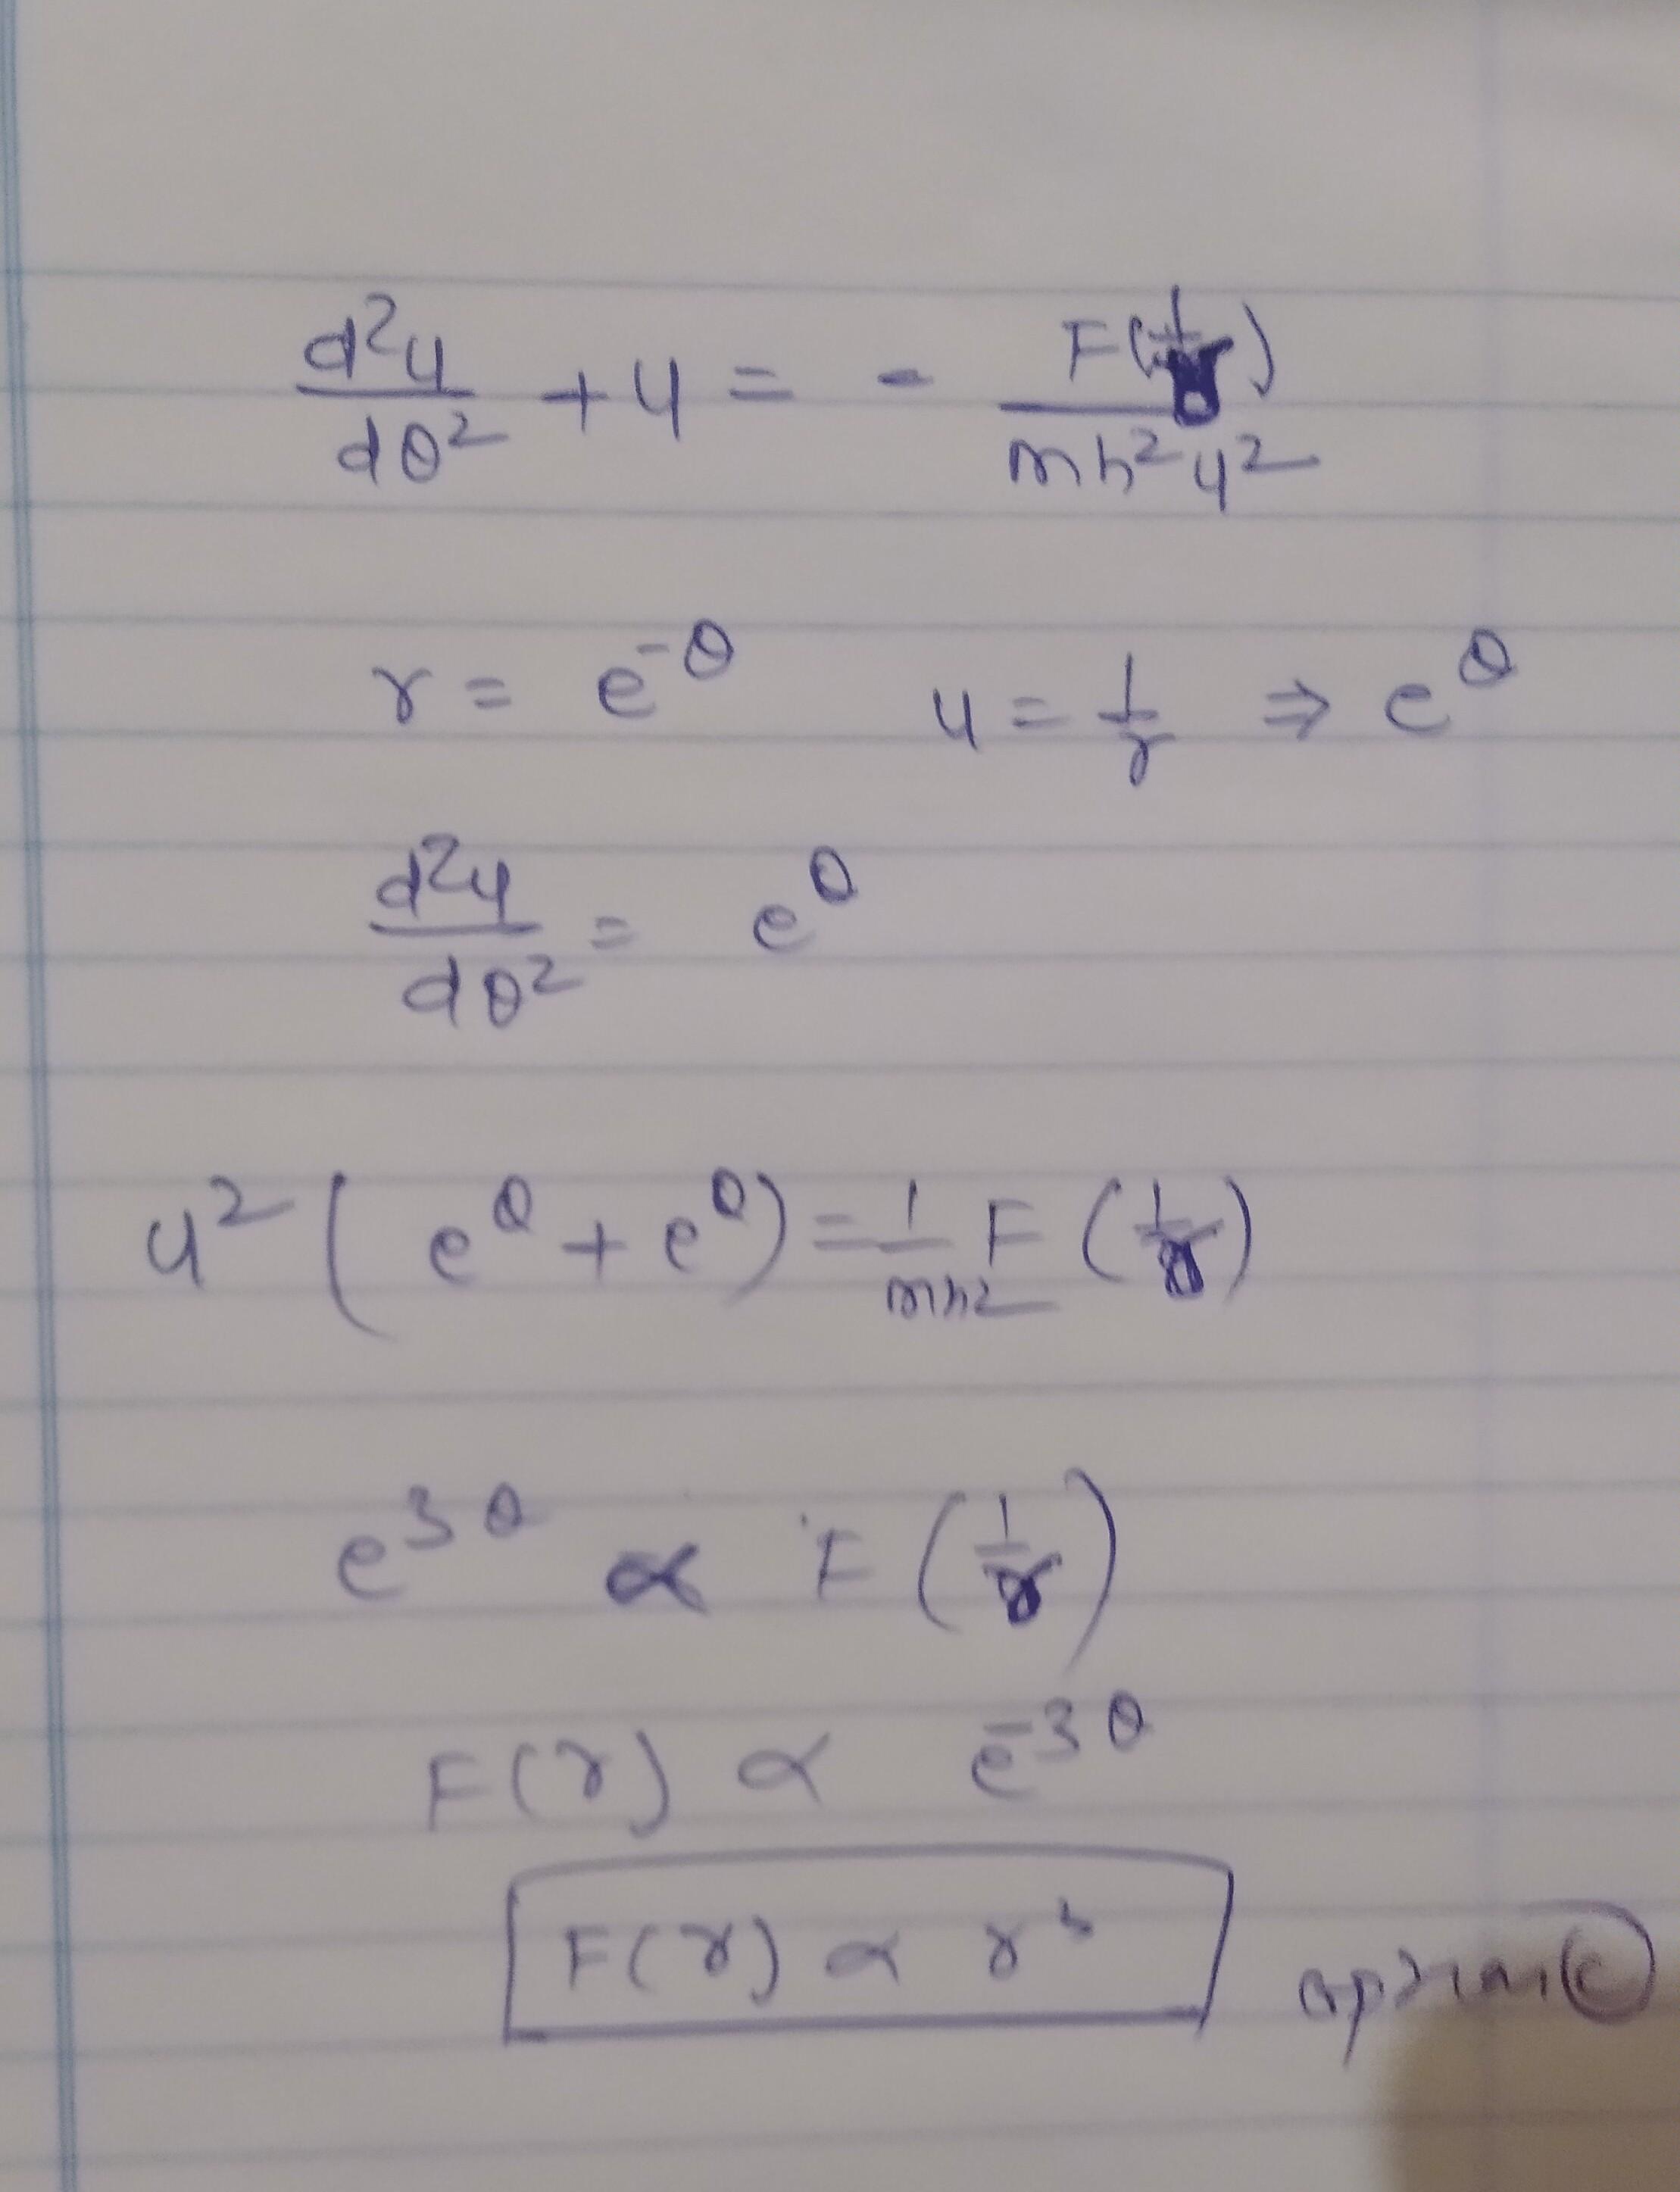 d²u/dθ² + u = - F(1/r)/mh²u²
r = e^-θ u = 1/r ⇒ e^θ
d²u/dθ² = e^θ
u² (e^θ + e^θ) = 1/mh² F (1/r)
e^3θ ∝ F (1/r)
F(r) ∝ e^-3θ
F(r) ∝ r³ option (c)